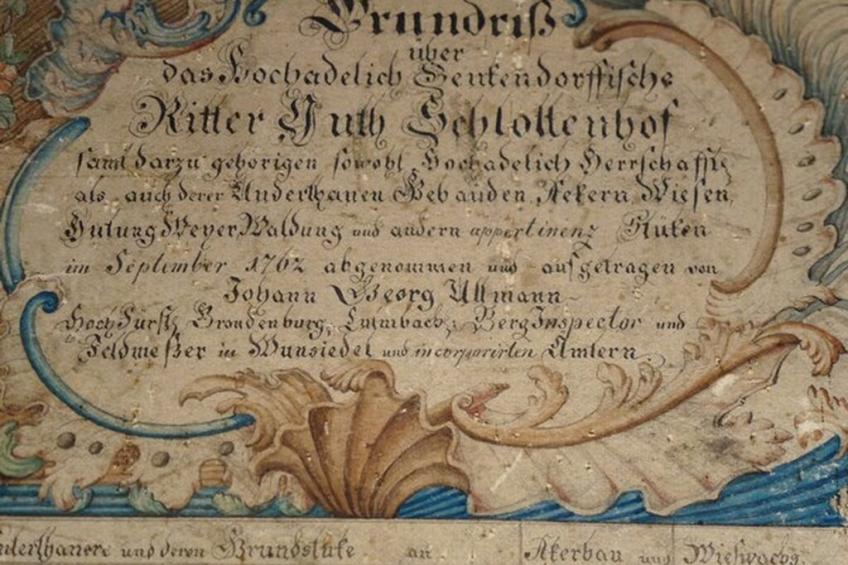 Grundriß
über
das Hochadelich Senkendorffische
Ritter Guth Schlottenhof
samt darzu gehörigen sowohl Hochadelich Herrschafftl.
als auch derer Underthanen Gebäuden, Aekern, Wiesen,
Hutung Weyer, Waldung und andern appertinenz Stüken
im September 1762 abgenommen und aufgetragen von
Johann Georg Ullmann
HochFürstl. Brandenburg. Culmbach. BergInspector und
Feldmeßer in Wunsiedel und incorporirten Amtern.
Underthanere und deren Grundstüke an Akerbau und Wießwachs.